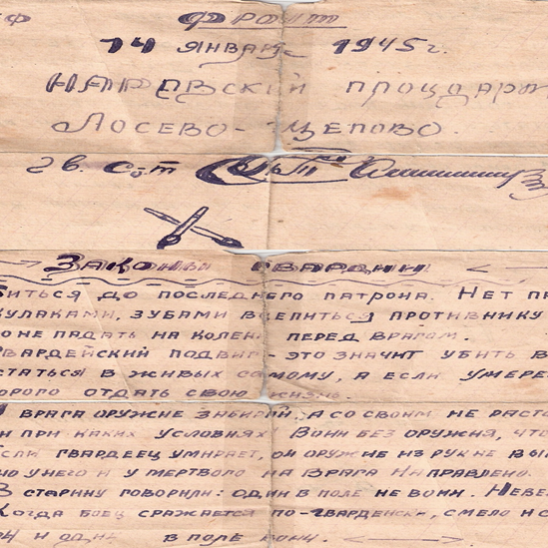 ФРОНТ
14 ЯНВАРЯ 1945г.
НАРЕВСКИЙ ПЛОЦДАРМ
ЛОСЕВО-ЩЕПОВО.
Гв. С-т
ЗАКОНЫ ГВАРДИИ
БИТЬСЯ ДО ПОСЛЕДНЕГО ПАТРОНА. НЕТ
КУЛАКАМИ, ЗУБАМИ ВЦЕПИТЬСЯ ПРОТИВНИКУ
НЕ ПАДАТЬ НА КОЛЕНИ ПЕРЕД ВРАГОМ.
ГВАРДЕЙСКИЙ ПОДВИГ - ЭТО ЗНАЧИТ УБИТЬ
СТАТЬСЯ В ЖИВЫХ САМОМУ, А ЕСЛИ УМЕРЕТЬ
ДОРОГО ОТДАТЬ СВОЮ ЖИЗНЬ.
У ВРАГА ОРУЖИЕ ЗАБИРАЙ, А СО СВОИМ НЕ РАСТ
НИ ПРИ КАКИХ УСЛОВИЯХ ВОИН БЕЗ ОРУЖИЯ, ЧТО
ЕСЛИ ГВАРДЕЕЦ УМИРАЕТ, ОН ОРУЖИЕ ИЗ РУК НЕ ВЫП
НО У НЕГО И У МЕРТВОГО НА ВРАГА НАПРАВЛЕНО.
В СТАРИНУ ГОВОРИЛИ: ОДИН В ПОЛЕ НЕ ВОИН. НЕВЕР
КОГДА БОЕЦ СРАЖАЕТСЯ ПО-ГВАРДЕЙСКИ, СМЕЛО И С
ОН И ОДИН В ПОЛЕ ВОИН.